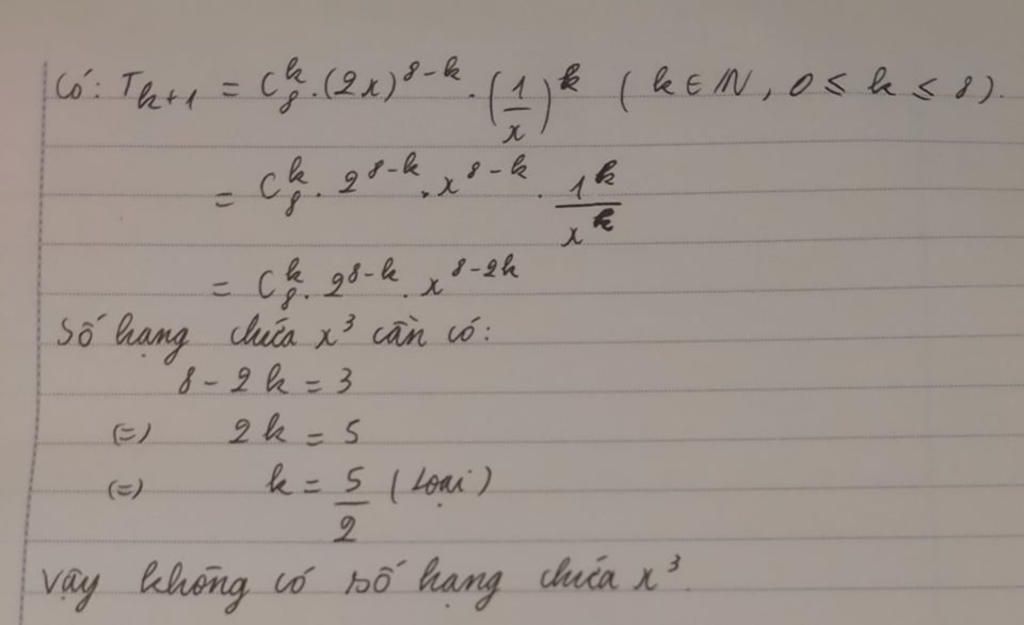 Có: T_{k+1} = C_8^k . (2x)^{8-k} . (1/x)^k ( k ∈ N, 0 ≤ k ≤ 8).
= C_8^k . 2^{8-k} . x^{8-k} . 1^k/x^k
= C_8^k . 2^{8-k} . x^{8-2k}
Số hạng chứa x³ cần có:
8 - 2k = 3
(=) 2k = 5
(=) k = 5/2 (Loại)
Vậy không có số hạng chứa x³.